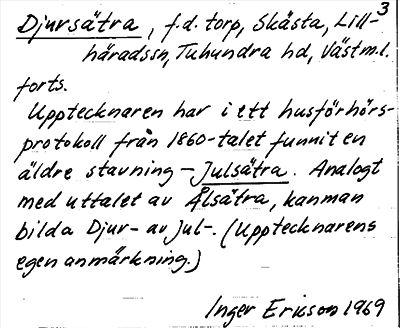 3
Djursätra, f.d. torp, Skästa, Lill-
häradssn, Tuhundra hd, Västml.
forts.
Upptecknaren har i ett husförhörs-
protokoll från 1860-talet funnit en
äldre stavning – Julsätra. Analogt
med uttalet av Ålsätra, kanman
bilda Djur- av Jul-. (Upptecknarens
egen anmärkning.)
Inger Erikson 1969